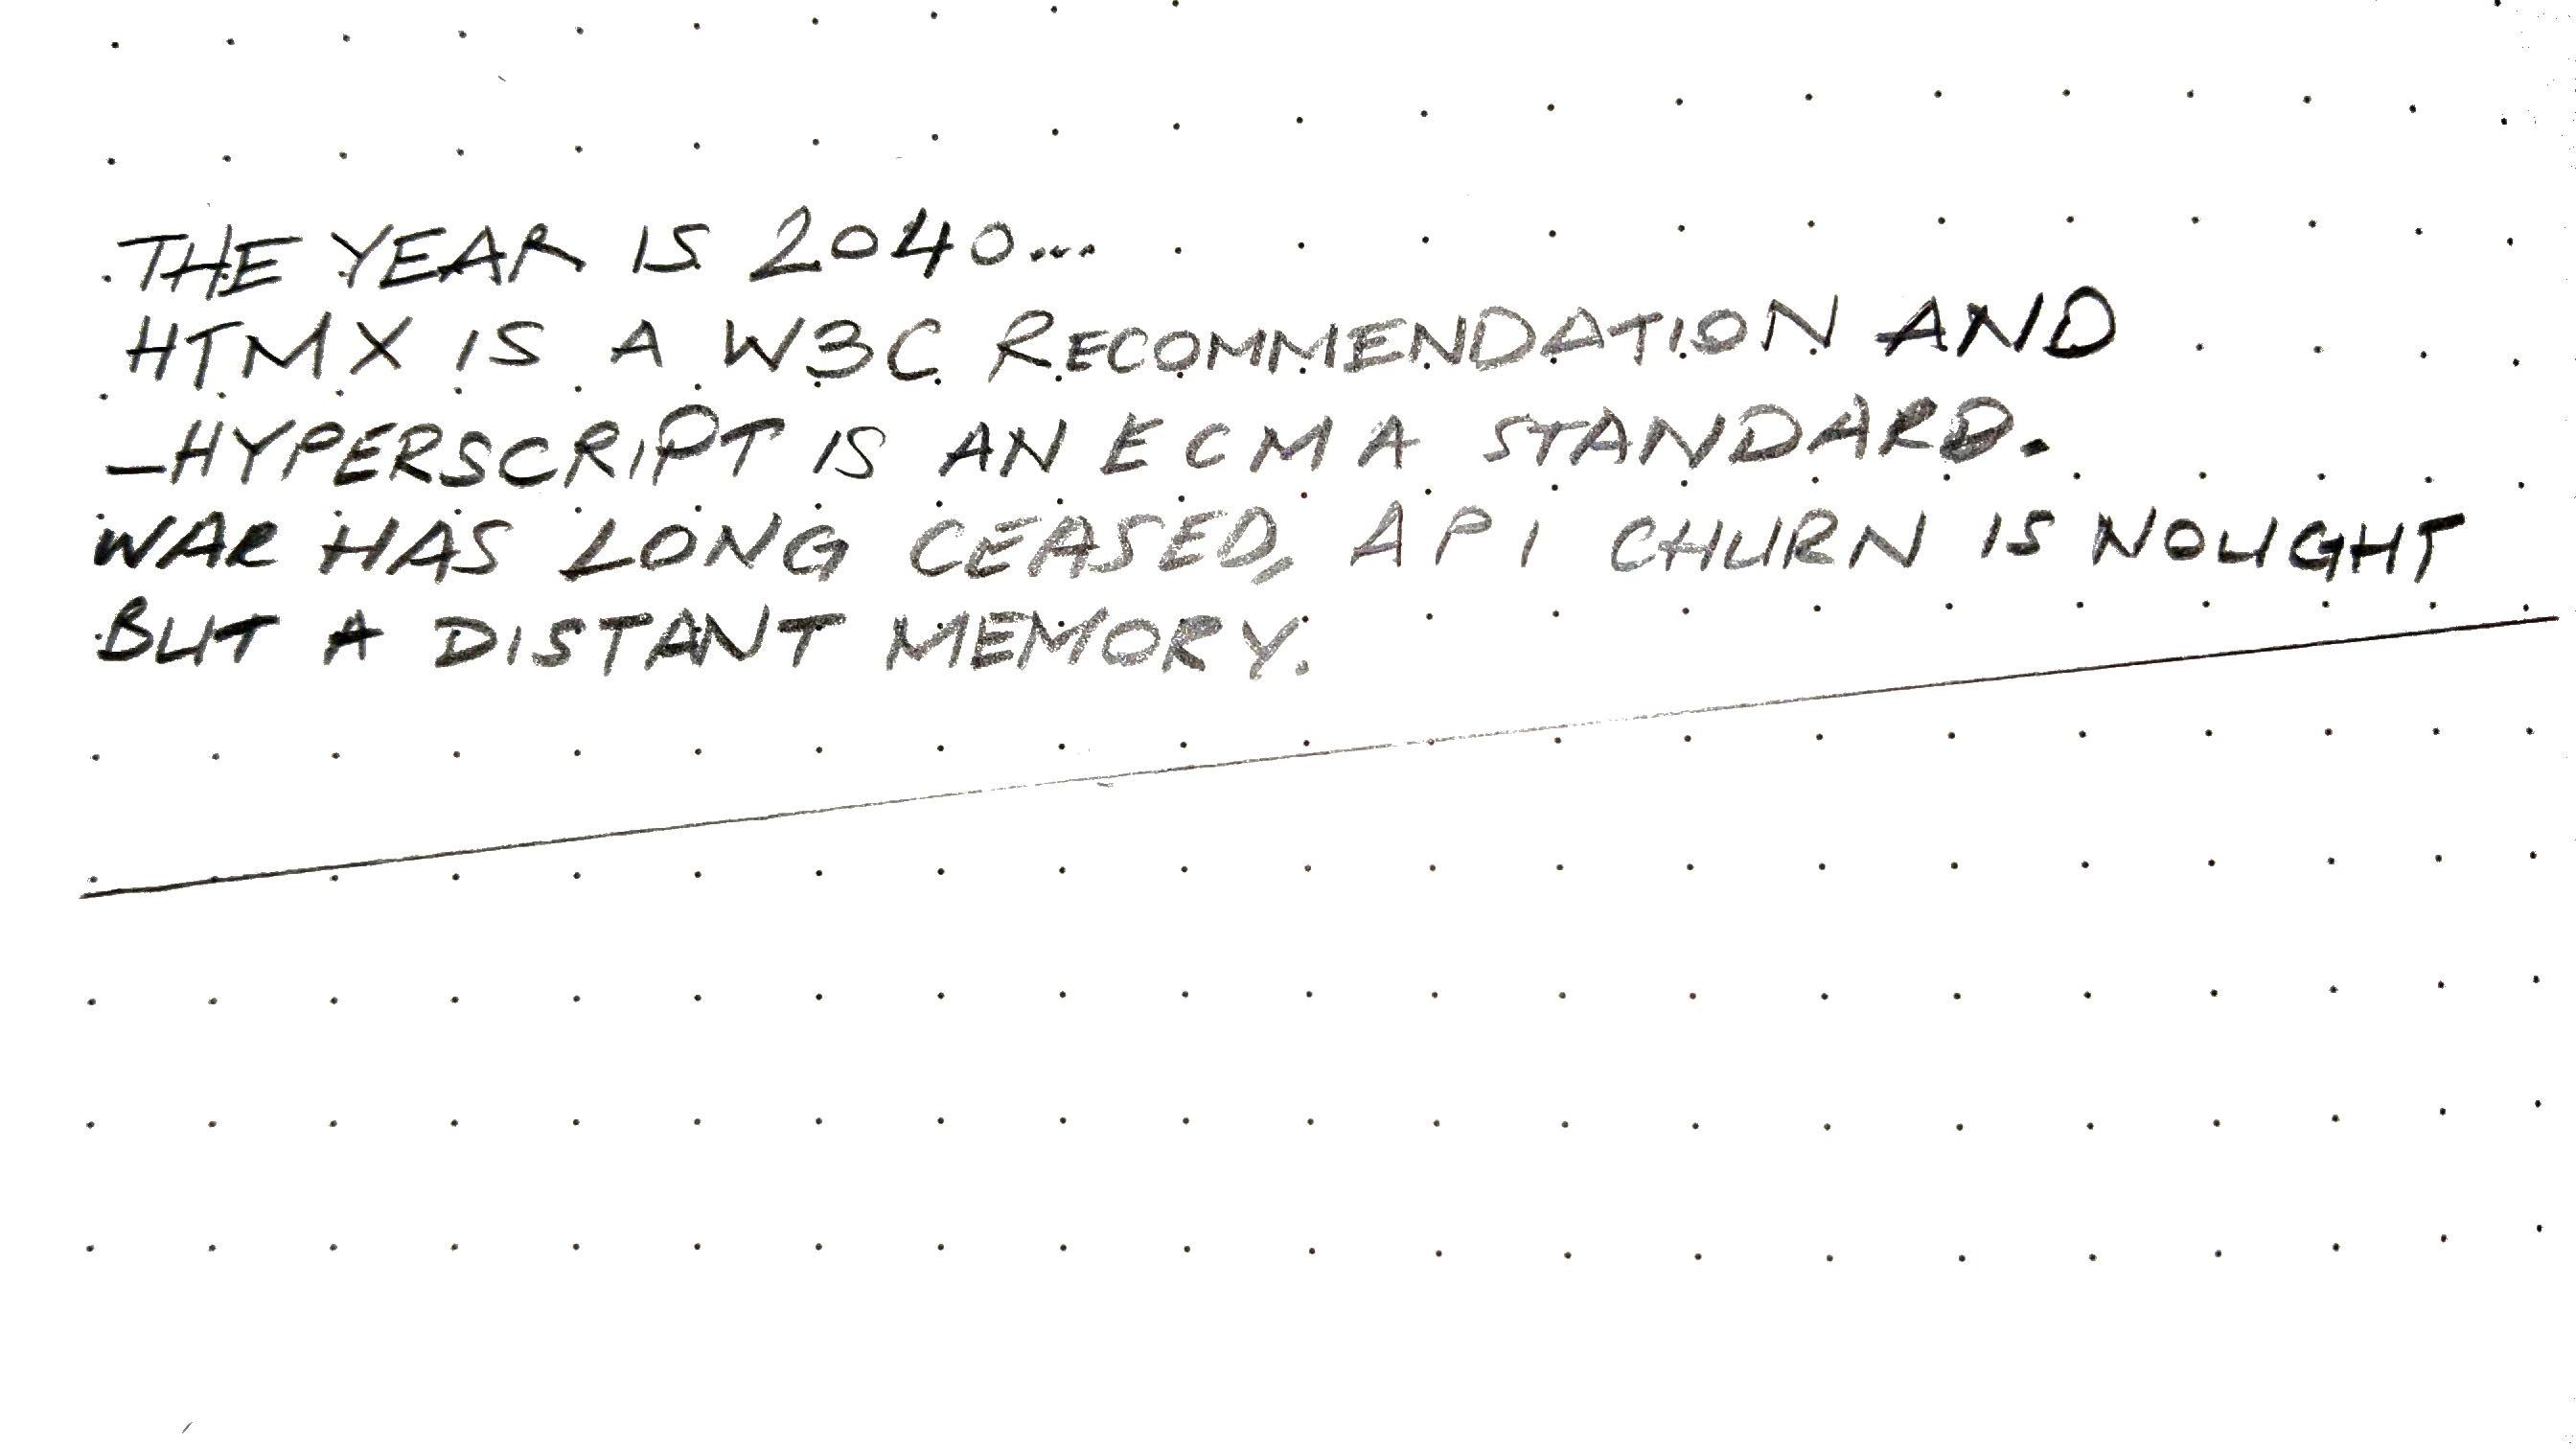 THE YEAR IS 2040...
HTMX IS A W3C RECOMMENDATION AND
_HYPERSCRIPT IS AN ECMA STANDARD.
WAR HAS LONG CEASED, API CHURN IS NOUGHT
BUT A DISTANT MEMORY.